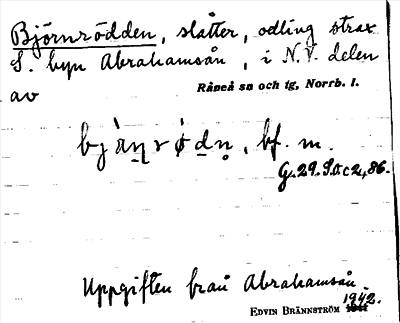 Björnrödden, slåtter, odling strax
S. byn Abrahamsån, i N.V. delen
av
Råneå sn och tg, Norrb. l.
bjà̠n̠rǿd̠n̥, bf. m.
G. 29. S.a c 2, 86.
Uppgiften från Abrahamsån.
1942.
EDVIN BRÄNNSTRÖM